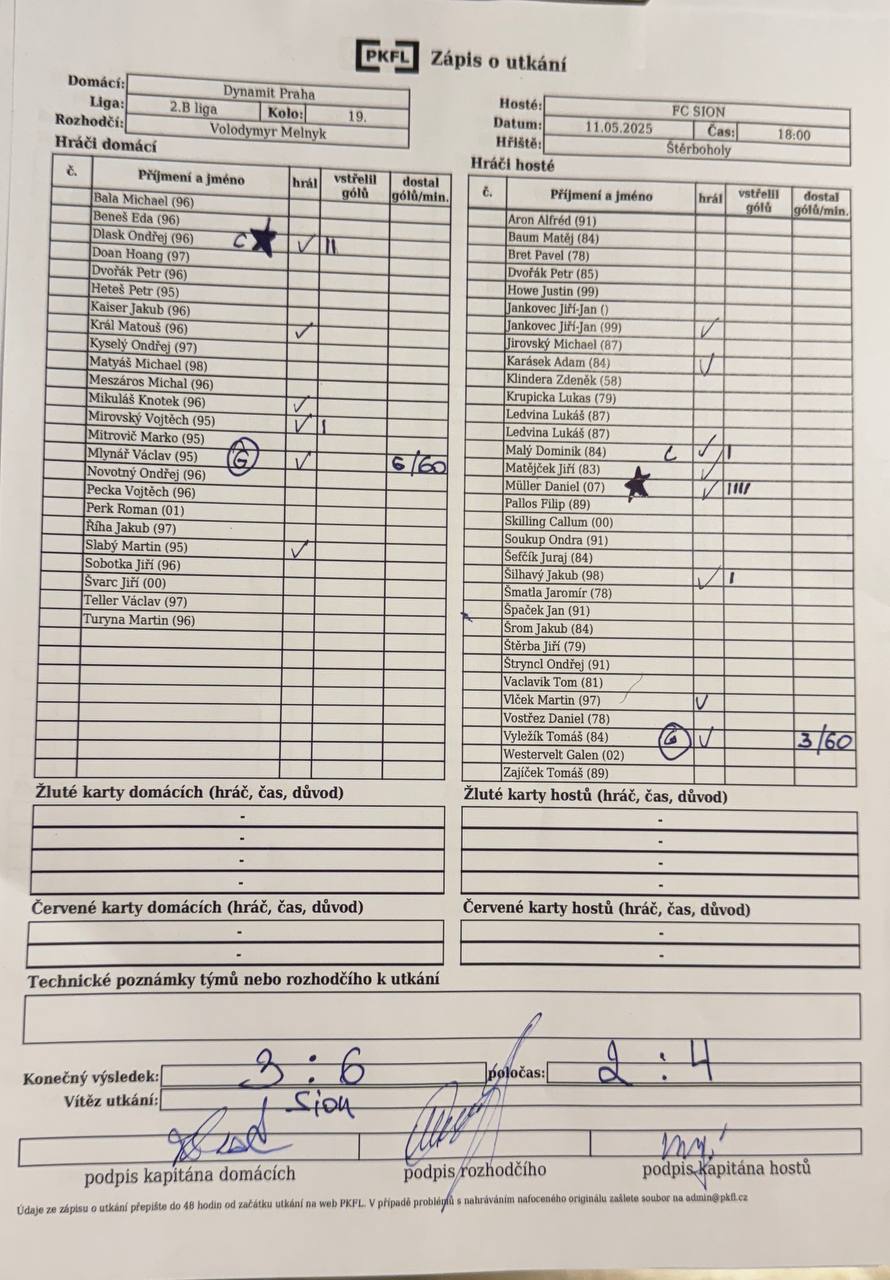 PKFL Zápis o utkání
Domácí: Dynamit Praha
Liga: 2.B liga Kolo: 19.
Rozhodčí: Volodymyr Melnyk
Hosté: FC SION
Datum: 11.05.2025 Čas: 18:00
Hřiště: Štěrboholy
Hráči domácí
č. Příjmení a jméno hrál vstřelil gólů dostal gólů/min.
Bala Michael (96)
Beneš Eda (96)
Dlask Ondřej (96) C ★ ✓ II
Doan Hoang (97)
Dvořák Petr (96)
Heteš Petr (95)
Kaiser Jakub (96)
Král Matouš (96) ✓
Kyselý Ondřej (97)
Matyáš Michael (98)
Meszáros Michal (96)
Mikuláš Knotek (96) ✓
Mirovský Vojtěch (95) ✓ I
Mitrovič Marko (95)
Mlynář Václav (95) G ✓ 6/60
Novotný Ondřej (96)
Pecka Vojtěch (96)
Perk Roman (01)
Říha Jakub (97)
Slabý Martin (95) ✓
Sobotka Jiří (96)
Švarc Jiří (00)
Teller Václav (97)
Turyna Martin (96)
Hráči hosté
č. Příjmení a jméno hrál vstřelil gólů dostal gólů/min.
Aron Alfréd (91)
Baum Matěj (84)
Bret Pavel (78)
Dvořák Petr (85)
Howe Justin (99)
Jankovec Jiří-Jan ()
Jankovec Jiří-Jan (99) ✓
Jirovský Michael (87)
Karásek Adam (84) ✓
Klindera Zdeněk (58)
Krupicka Lukas (79)
Ledvina Lukáš (87)
Ledvina Lukáš (87)
Malý Dominik (84) C ✓ I
Matějček Jiří (83) ✓
Müller Daniel (07) ★ ✓ IIII
Pallos Filip (89)
Skilling Callum (00)
Soukup Ondra (91)
Šefčík Juraj (84)
Šilhavý Jakub (98) ✓ I
Šmatla Jaromír (78)
Špaček Jan (91)
Šrom Jakub (84)
Štěrba Jiří (79)
Štryncl Ondřej (91)
Vaclavik Tom (81)
Vlček Martin (97) ✓
Vostřez Daniel (78)
Vyležík Tomáš (84) G ✓ 3/60
Westervelt Galen (02)
Zajíček Tomáš (89)
Žluté karty domácích (hráč, čas, důvod)
-
-
-
-
Žluté karty hostů (hráč, čas, důvod)
-
-
-
-
Červené karty domácích (hráč, čas, důvod)
-
-
Červené karty hostů (hráč, čas, důvod)
-
-
Technické poznámky týmů nebo rozhodčího k utkání
Konečný výsledek: 3 : 6 poločas: 2 : 4
Vítěz utkání: Sion
podpis kapitána domácích podpis rozhodčího podpis kapitána hostů
Údaje ze zápisu o utkání přepište do 48 hodin od začátku utkání na web PKFL. V případě problémů s nahráváním nafoceného originálu zašlete soubor na admin@pkfl.cz